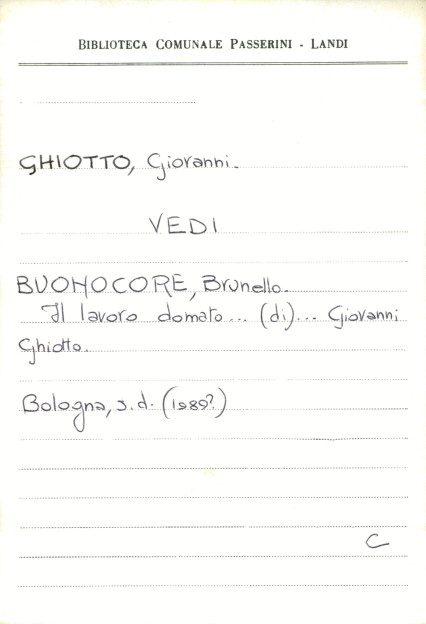 BIBLIOTECA COMUNALE PASSERINI - LANDI
GHIOTTO, Giovanni.
VEDI
BUONOCORE, Brunello.
Il lavoro domato... (di)... Giovanni
Ghiotto.
Bologna, s.d. (1989?)
C